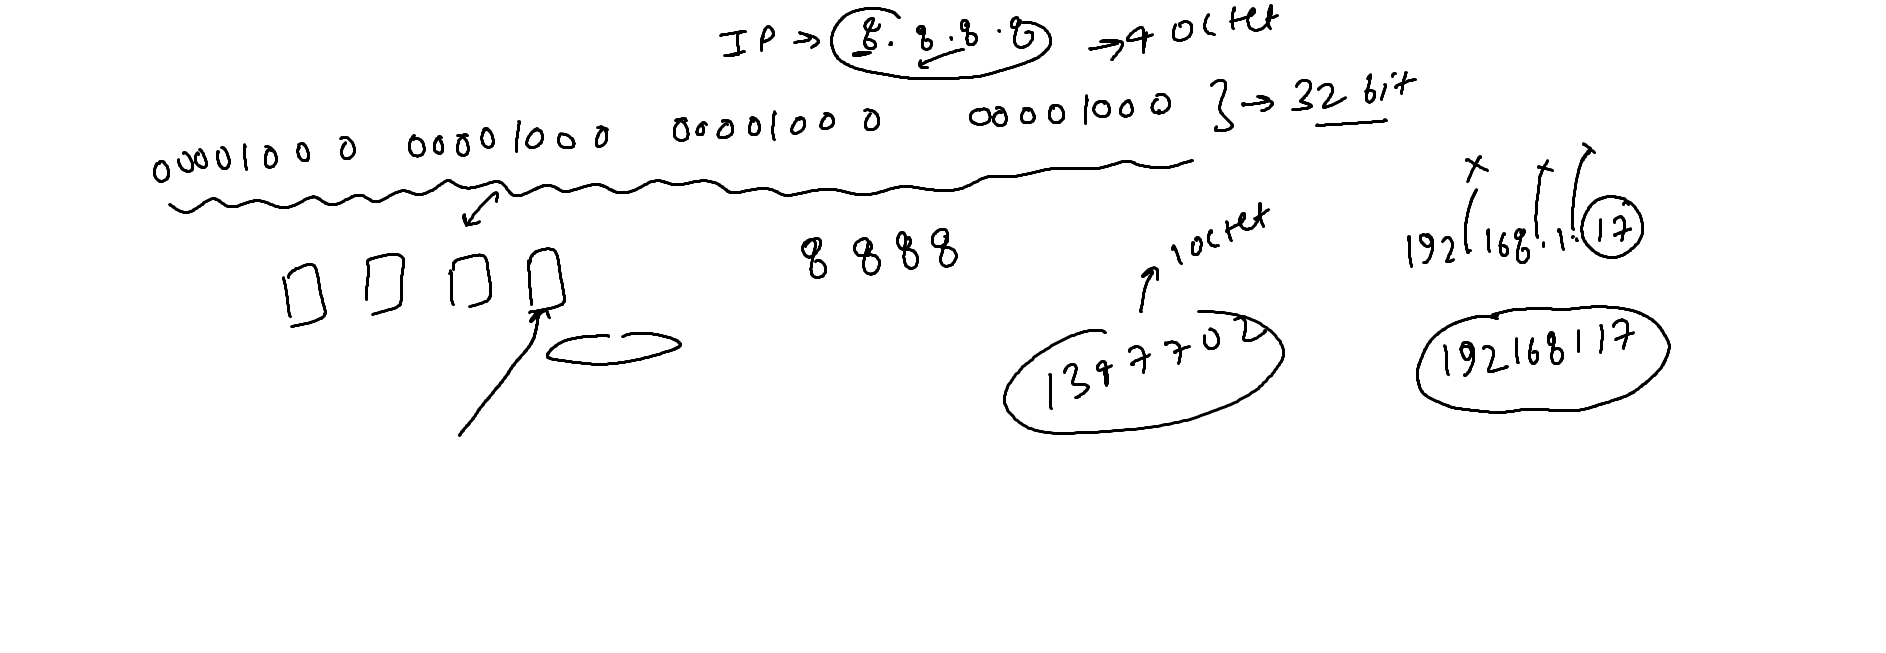 IP → 8.8.8.8 → 4 octet
00001000 00001000 00001000 00001000 } → 32 bit
8 8 8 8
1 octet
192.168.1.17
1347702
192168117